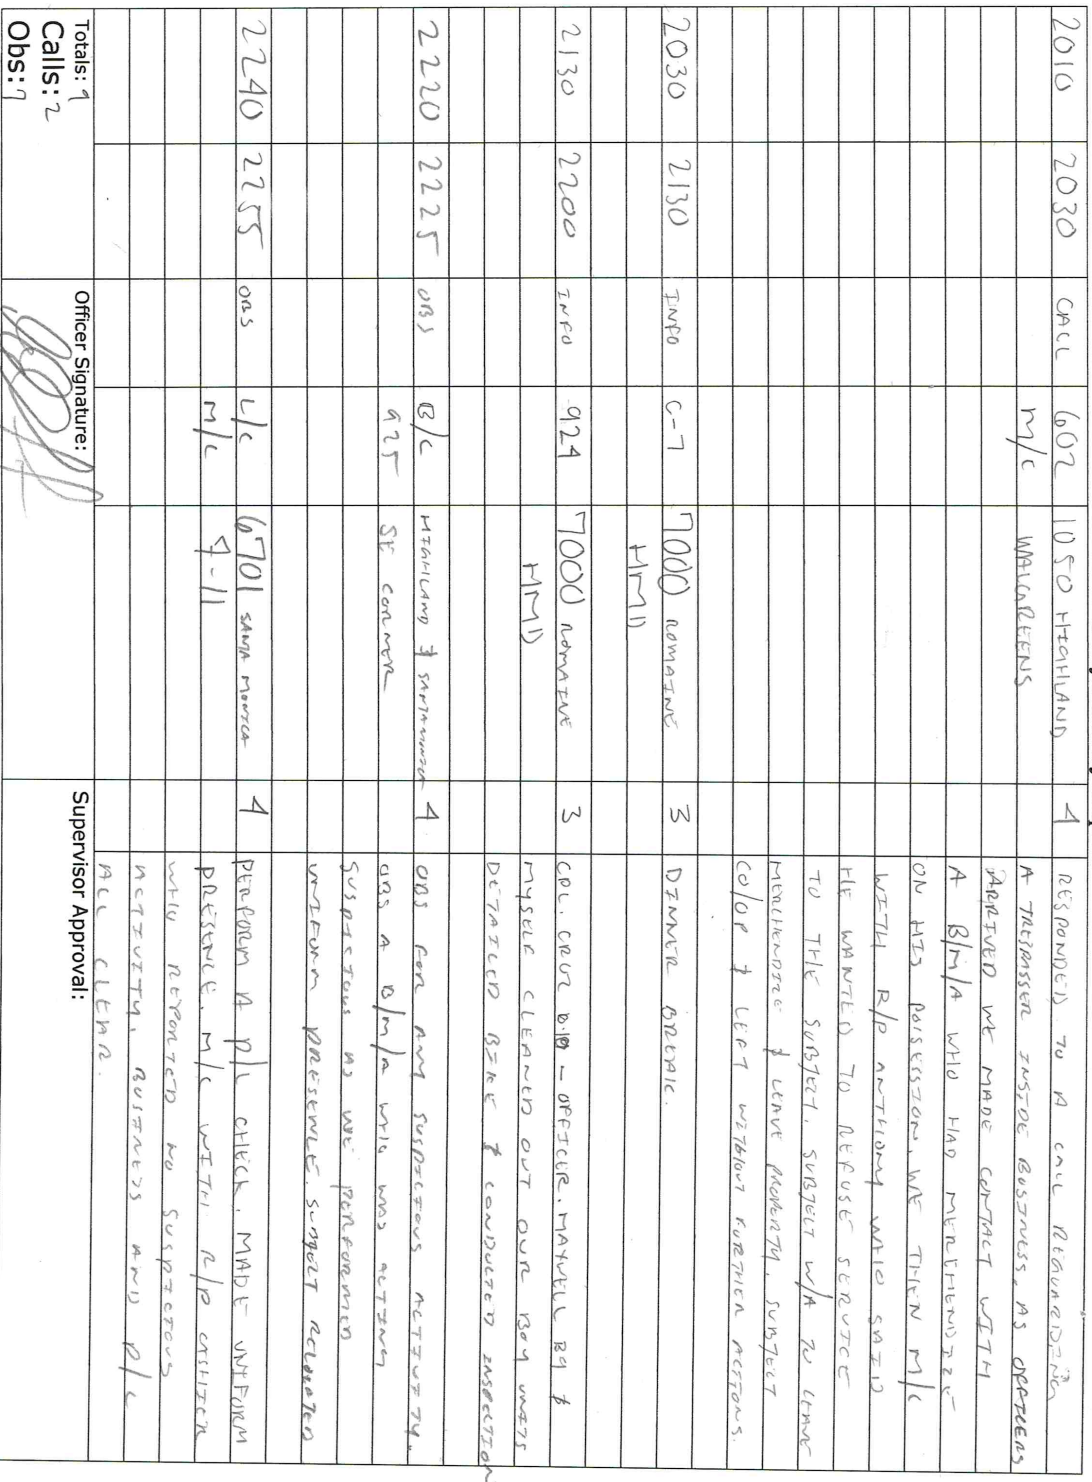 2010 2030 CALL 602 1050 HIGHLAND 4 RESPONDED TO A CALL REGUARDING
M/C WALGREENS A TRESPASSER INSIDE BUSINESS, AS OFFICERS
ARRIVED WE MADE CONTACT WITH
A B/M/A WHO HAD MERCHENDIZE
ON HIS POISESSION, WE THEN M/C
WITH R/P ANTHONY WHO SAID
HE WANTED TO REFUSE SERVICE
TO THE SUBJECT. SUBJECT W/A TO LEAVE
MERCHENDIZE & LEAVE PROPERTY, SUBJECT
CO/OP & LEFT WITHOUT FURTHER ACTIONS.
2030 2130 INFO C-7 7000 ROMAINE 3 DINNER BREAK.
HMD
2130 2200 INFO 924 7000 ROMAINE 3 CPL. CRUZ - OFFICER. MAXWELL B9 &
HMD MYSELF CLEANED OUT OUR BOY UNITS
DETAILED BIKE & CONDUCTED INSPECTION
2220 2225 OBS B/C HIGHLAND & SANTA MONICA 4 OBS FOR ANY SUSPICIOUS ACTIVITY.
925 SE CORNER OBS A B/M/A WHO WAS ACTING
SUSPICIOUS AS WE PERFORMED
UNIFORM PRESENCE. SUBJECT RELOCATED
2240 2255 OBS L/C 6701 SANTA MONICA 4 PERFORM A P/L CHECK. MADE UNIFORM
M/C 7-11 PRESENCE. M/C WITH R/P CASHIER
WHO REPORTED NO SUSPICIOUS
ACTIVITY. BUSINESS AND P/L
ALL CLEAR.
Totals: 9
Calls: 2
Obs: 7
Officer Signature:
Supervisor Approval: